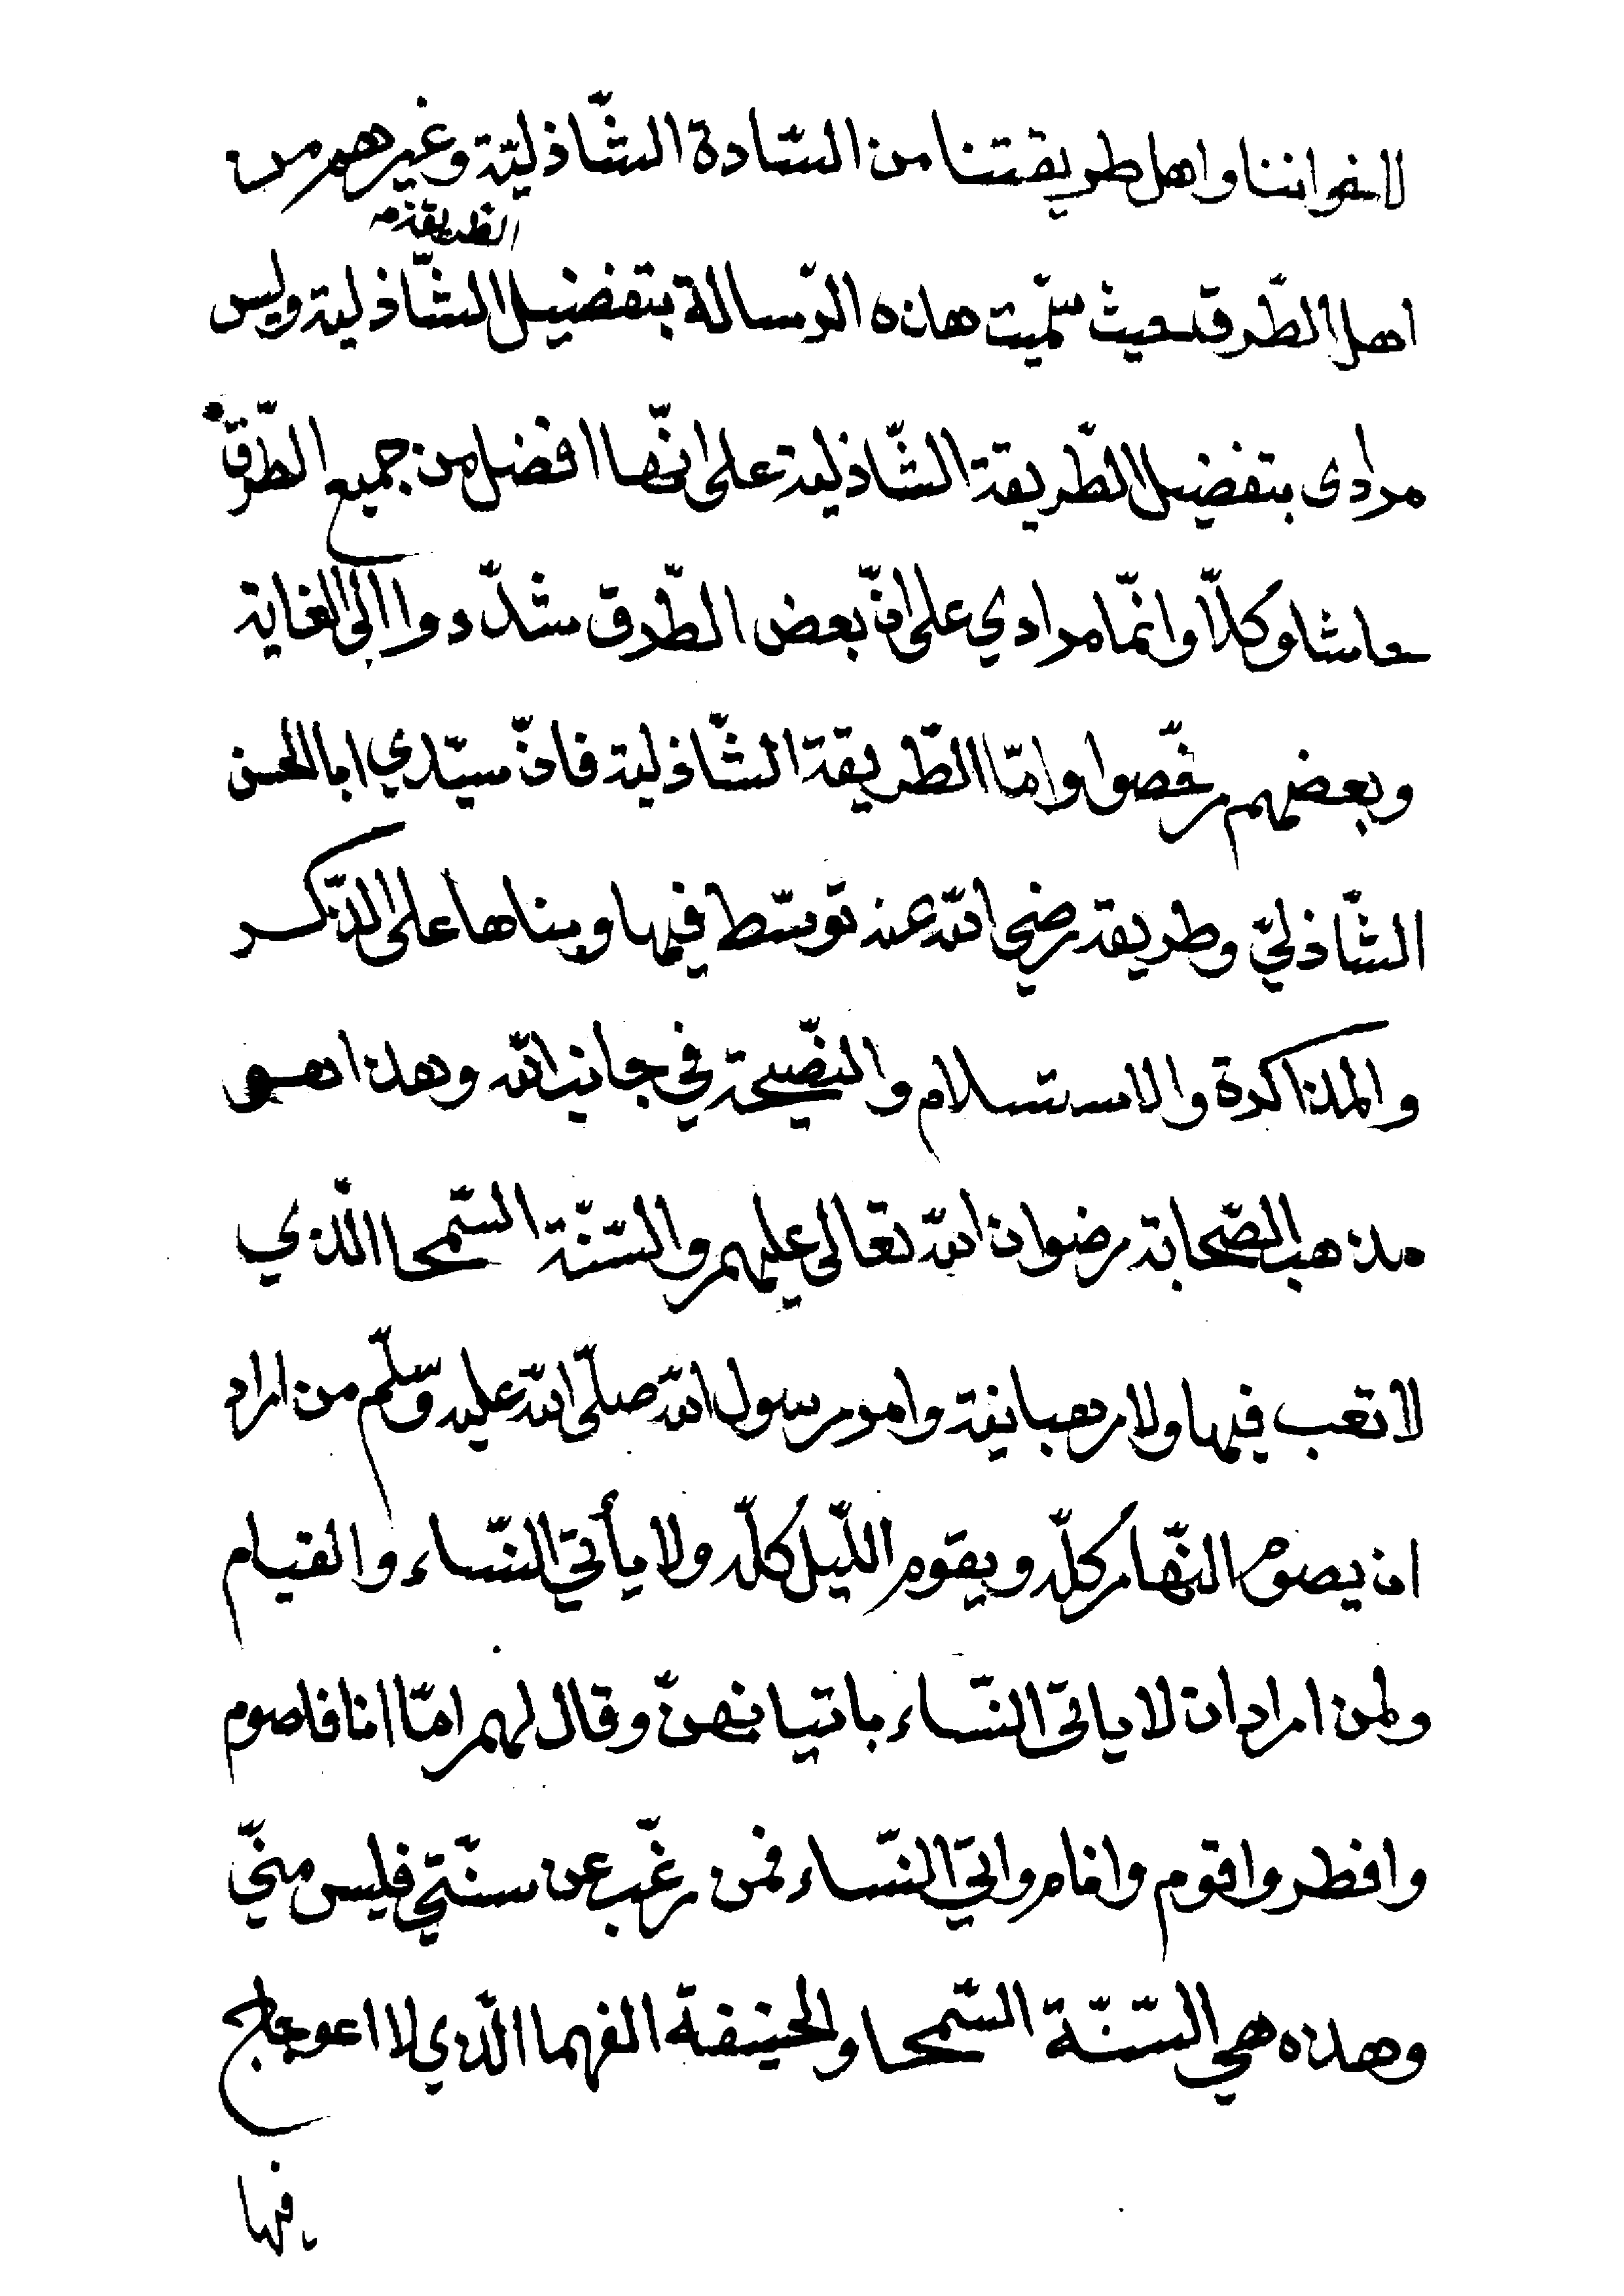 لاخواننا واهل طريقتنا من السّادة الشّاذليّة وغيرهم من
الطريقة
اهل الطّرق حيث سمّيت هاذه الرّسالة بتفضيل الشّاذلية وليس
مرادى بتفضيل الطّريقة الشّاذلية على انّها افضل من جميع الطّرق
حاشا وكلّا وانّما مرادي على انّ بعض الطّرق شدّدوا الى الغاية
وبعضهم رخّصوا وامّا الطّريقة الشّاذلية فانّ سيّدي ابا الحسن
الشّاذليّ وطريقه رضي الله عنه توسّط فيها وبناها على الذّكر
والمذاكرة والاستسلام والنّصيحة في جانب الله وهذا هو
مذهب الصّحابة رضوان الله تعالى عليهم والسّنّة السّمحا الّذي
لا تعب فيها ولا رهبانية وامر رسول الله صلّى الله عليه وسلّم من اراد
ان يصوم النّهار كلّه ويقوم اللّيل كلّه ولا يأتي النّساء والقيام
ولمن اراد ان لا ياتى النّساء باتيانهنّ وقال لهم امّا انا فاصوم
وافطر واقوم وانام واتي النّساء فمن رغب عن سنّتي فليس منّي
وهذه هي السّنّة السّمحا والحنيفة الفهما الّذي لا اعوجاج
فيها